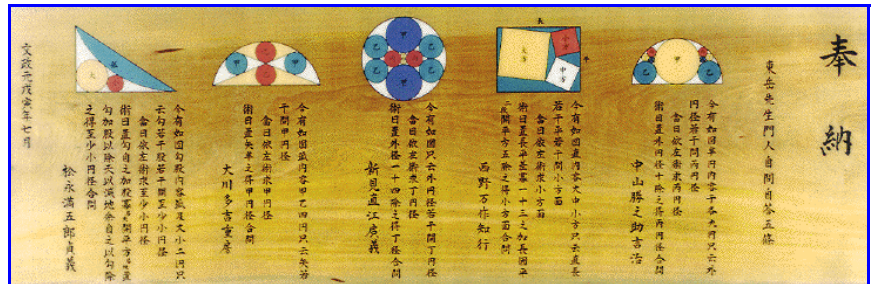 奉納
東岳先生門人自問自答五條
甲
乙
乙
今有如図半円内容于各円只云外
円径若干問丙円径
答曰依左術求丙円径
術曰置外円径十除之得丙円径合問
中山勝之助吉治
長
平
大方
小方
中方
今有如図直内容大中小方只云直長
若干平若干問小方面
答曰依左術求小方面
術曰置長平差冪一十三之加長因平
二段開平方五除之得小方面合問
西野万作知行
甲
乙
乙
乙
乙
甲
今有如図只云外円径若干問丁円径
答曰依左術求丁円径
術曰置外径一十四除之得丁径合問
新見直江広義
甲
乙
甲
乙
今有如図弧内容甲乙四円只云矢若
干問甲円径
答曰依左術求甲円径
術曰置矢半之得甲円径合問
大川多吉重房
弦
大
小
今有如図勾股内容弧及大小二円只
云勾若干股若干問至少小円径
答曰依左術求至少小円径
術曰置勾自之加股冪開平方置
勾加股以除天以減地余自之以勾除
之得至少小円径合問
松永満五郎貞義
文政元戊寅年七月